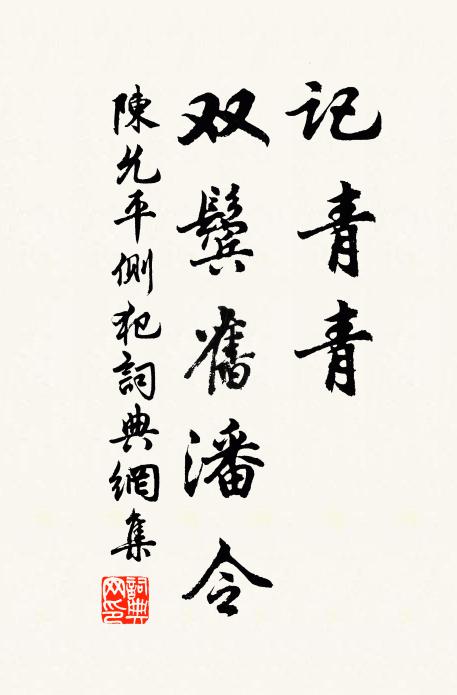 记青青
双鬓舊潘令
陳允平側犯詞典網集
詞典网印